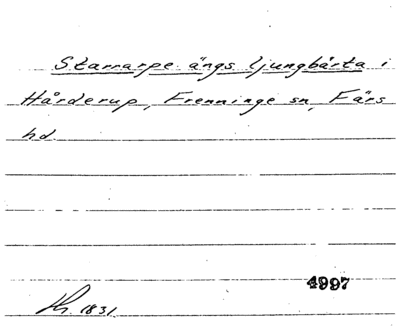 Starrarpe ängs ljungbärta i
Hårderup, Frenninge sn, Färs
hd.
4997
1831